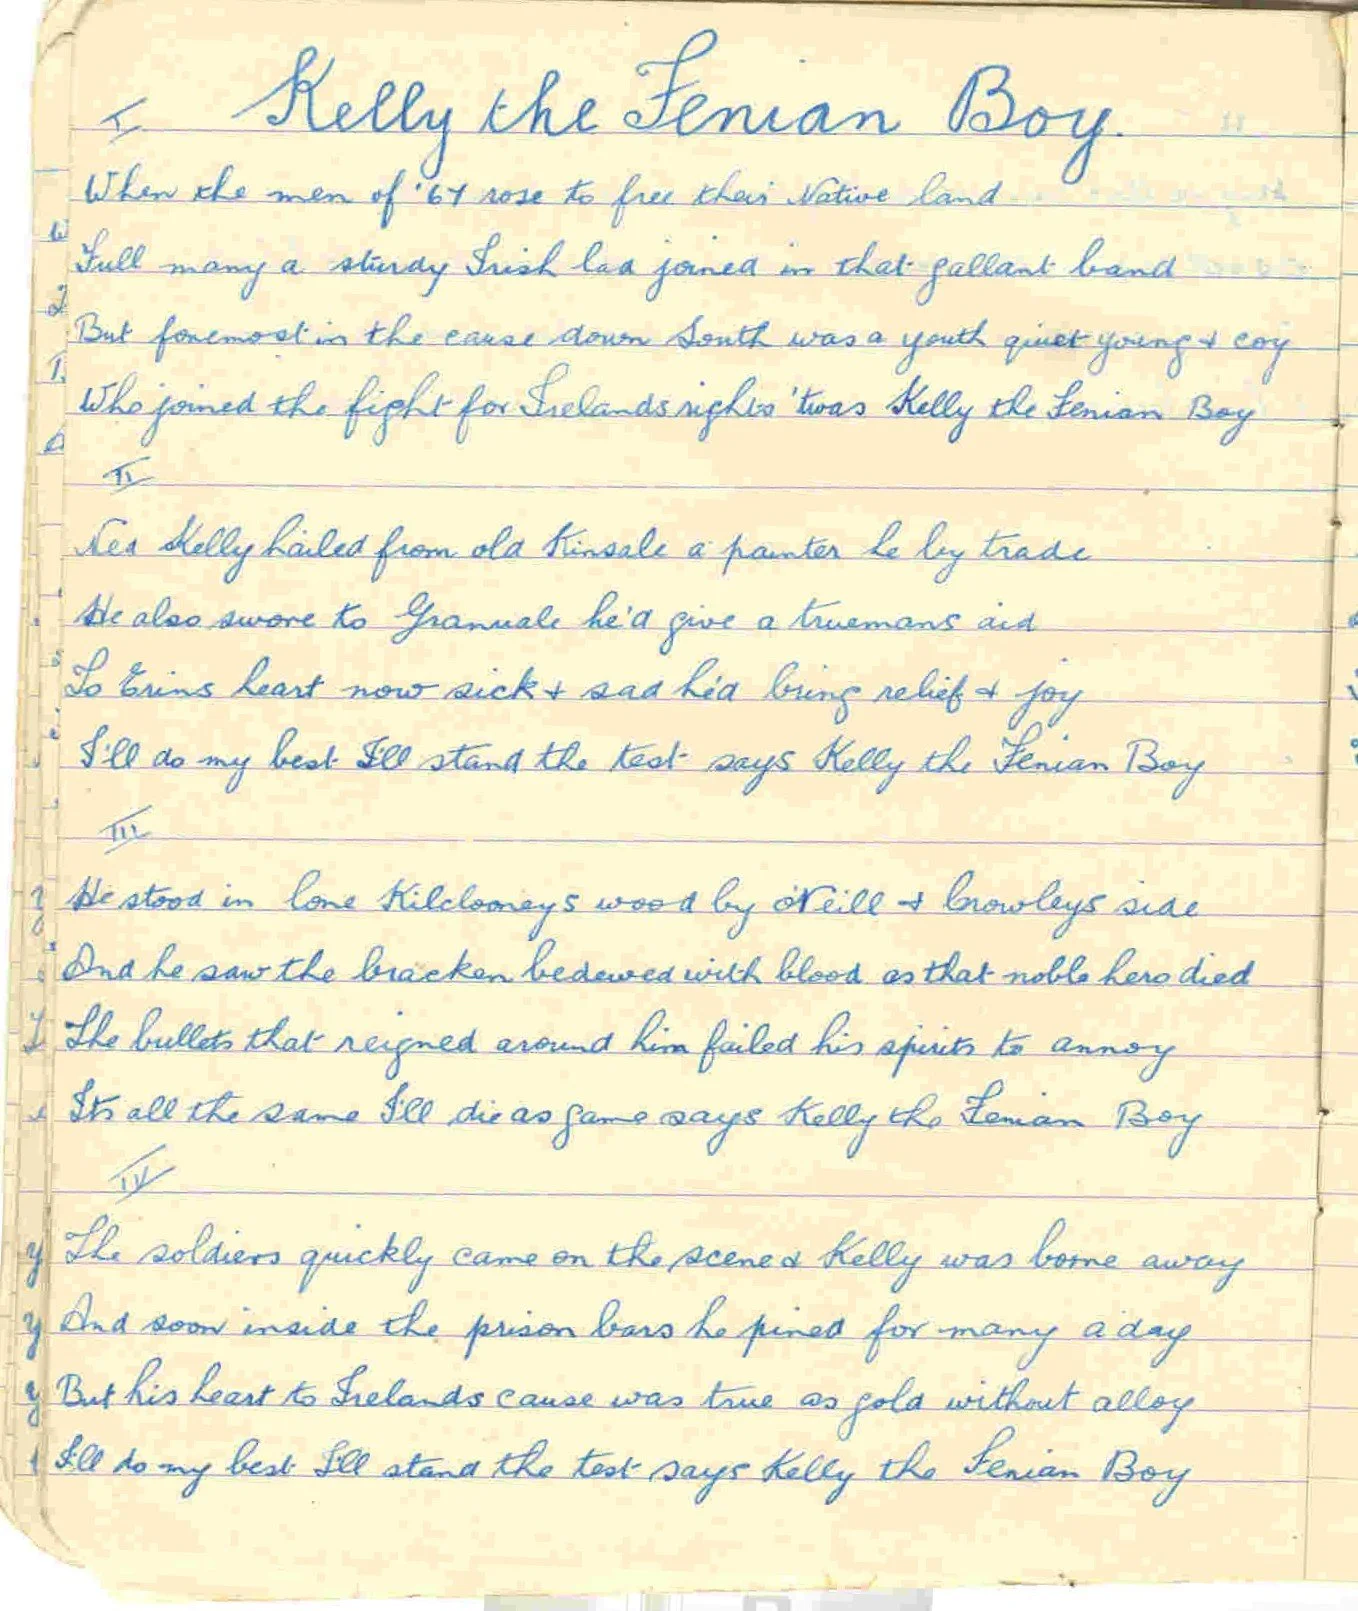 Kelly the Fenian Boy.
I
When the men of '67 rose to free their Native land
Full many a sturdy Irish lad joined in that gallant band
But foremost in the cause down South was a youth quiet young & coy
Who joined the fight for Irelands rights 'twas Kelly the Fenian Boy
II
Ned Kelly hailed from old Kinsale a painter he by trade
He also swore to Granuale he'd give a truemans aid
To Erins heart now sick & sad he'd bring relief & joy
I'll do my best I'll stand the test says Kelly the Fenian Boy
III
He stood in lone Kilclooneys wood by O'Neill & Crowleys side
And he saw the bracken bedewed with blood as that noble hero died
The bullets that reigned around him failed his spirits to annoy
Its all the same I'll die as game says Kelly the Fenian Boy
IV
The soldiers quickly came on the scene & Kelly was borne away
And soon inside the prison bars he pined for many a day
But his heart to Irelands cause was true as gold without alloy
I'll do my best I'll stand the test says Kelly the Fenian Boy